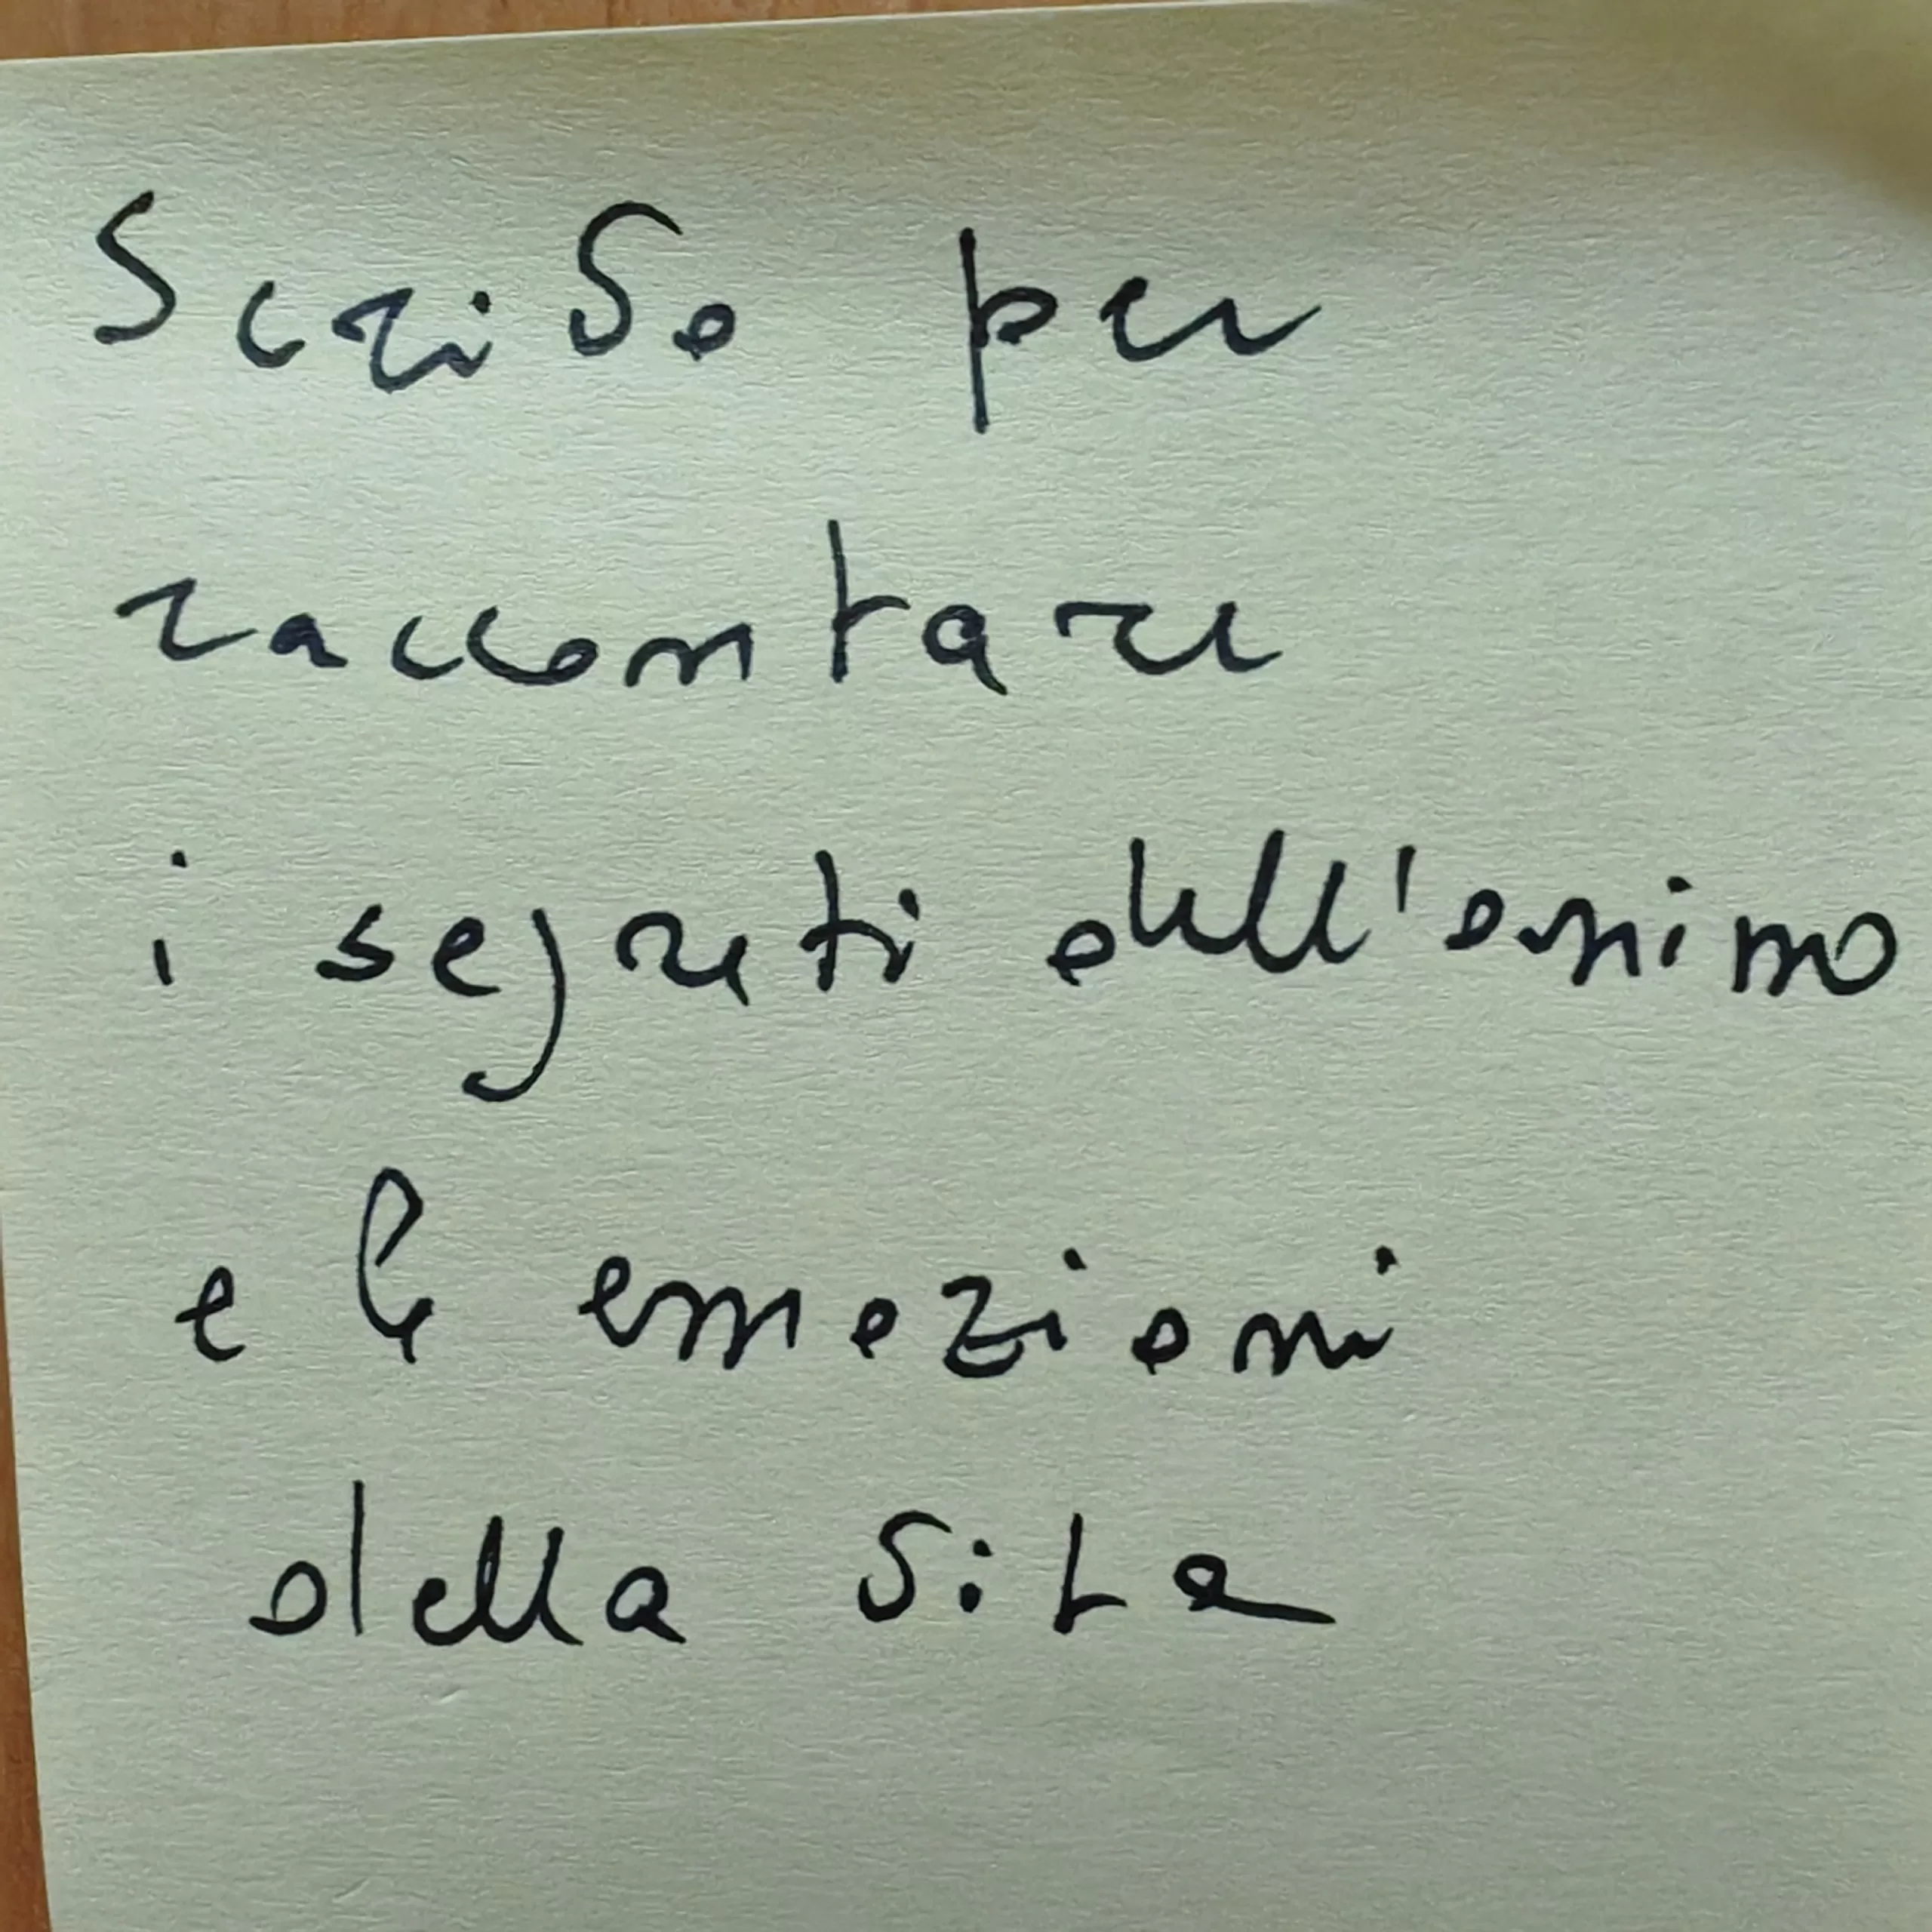 Scrivo per
raccontare
i segreti dell'animo
e le emozioni
della vita